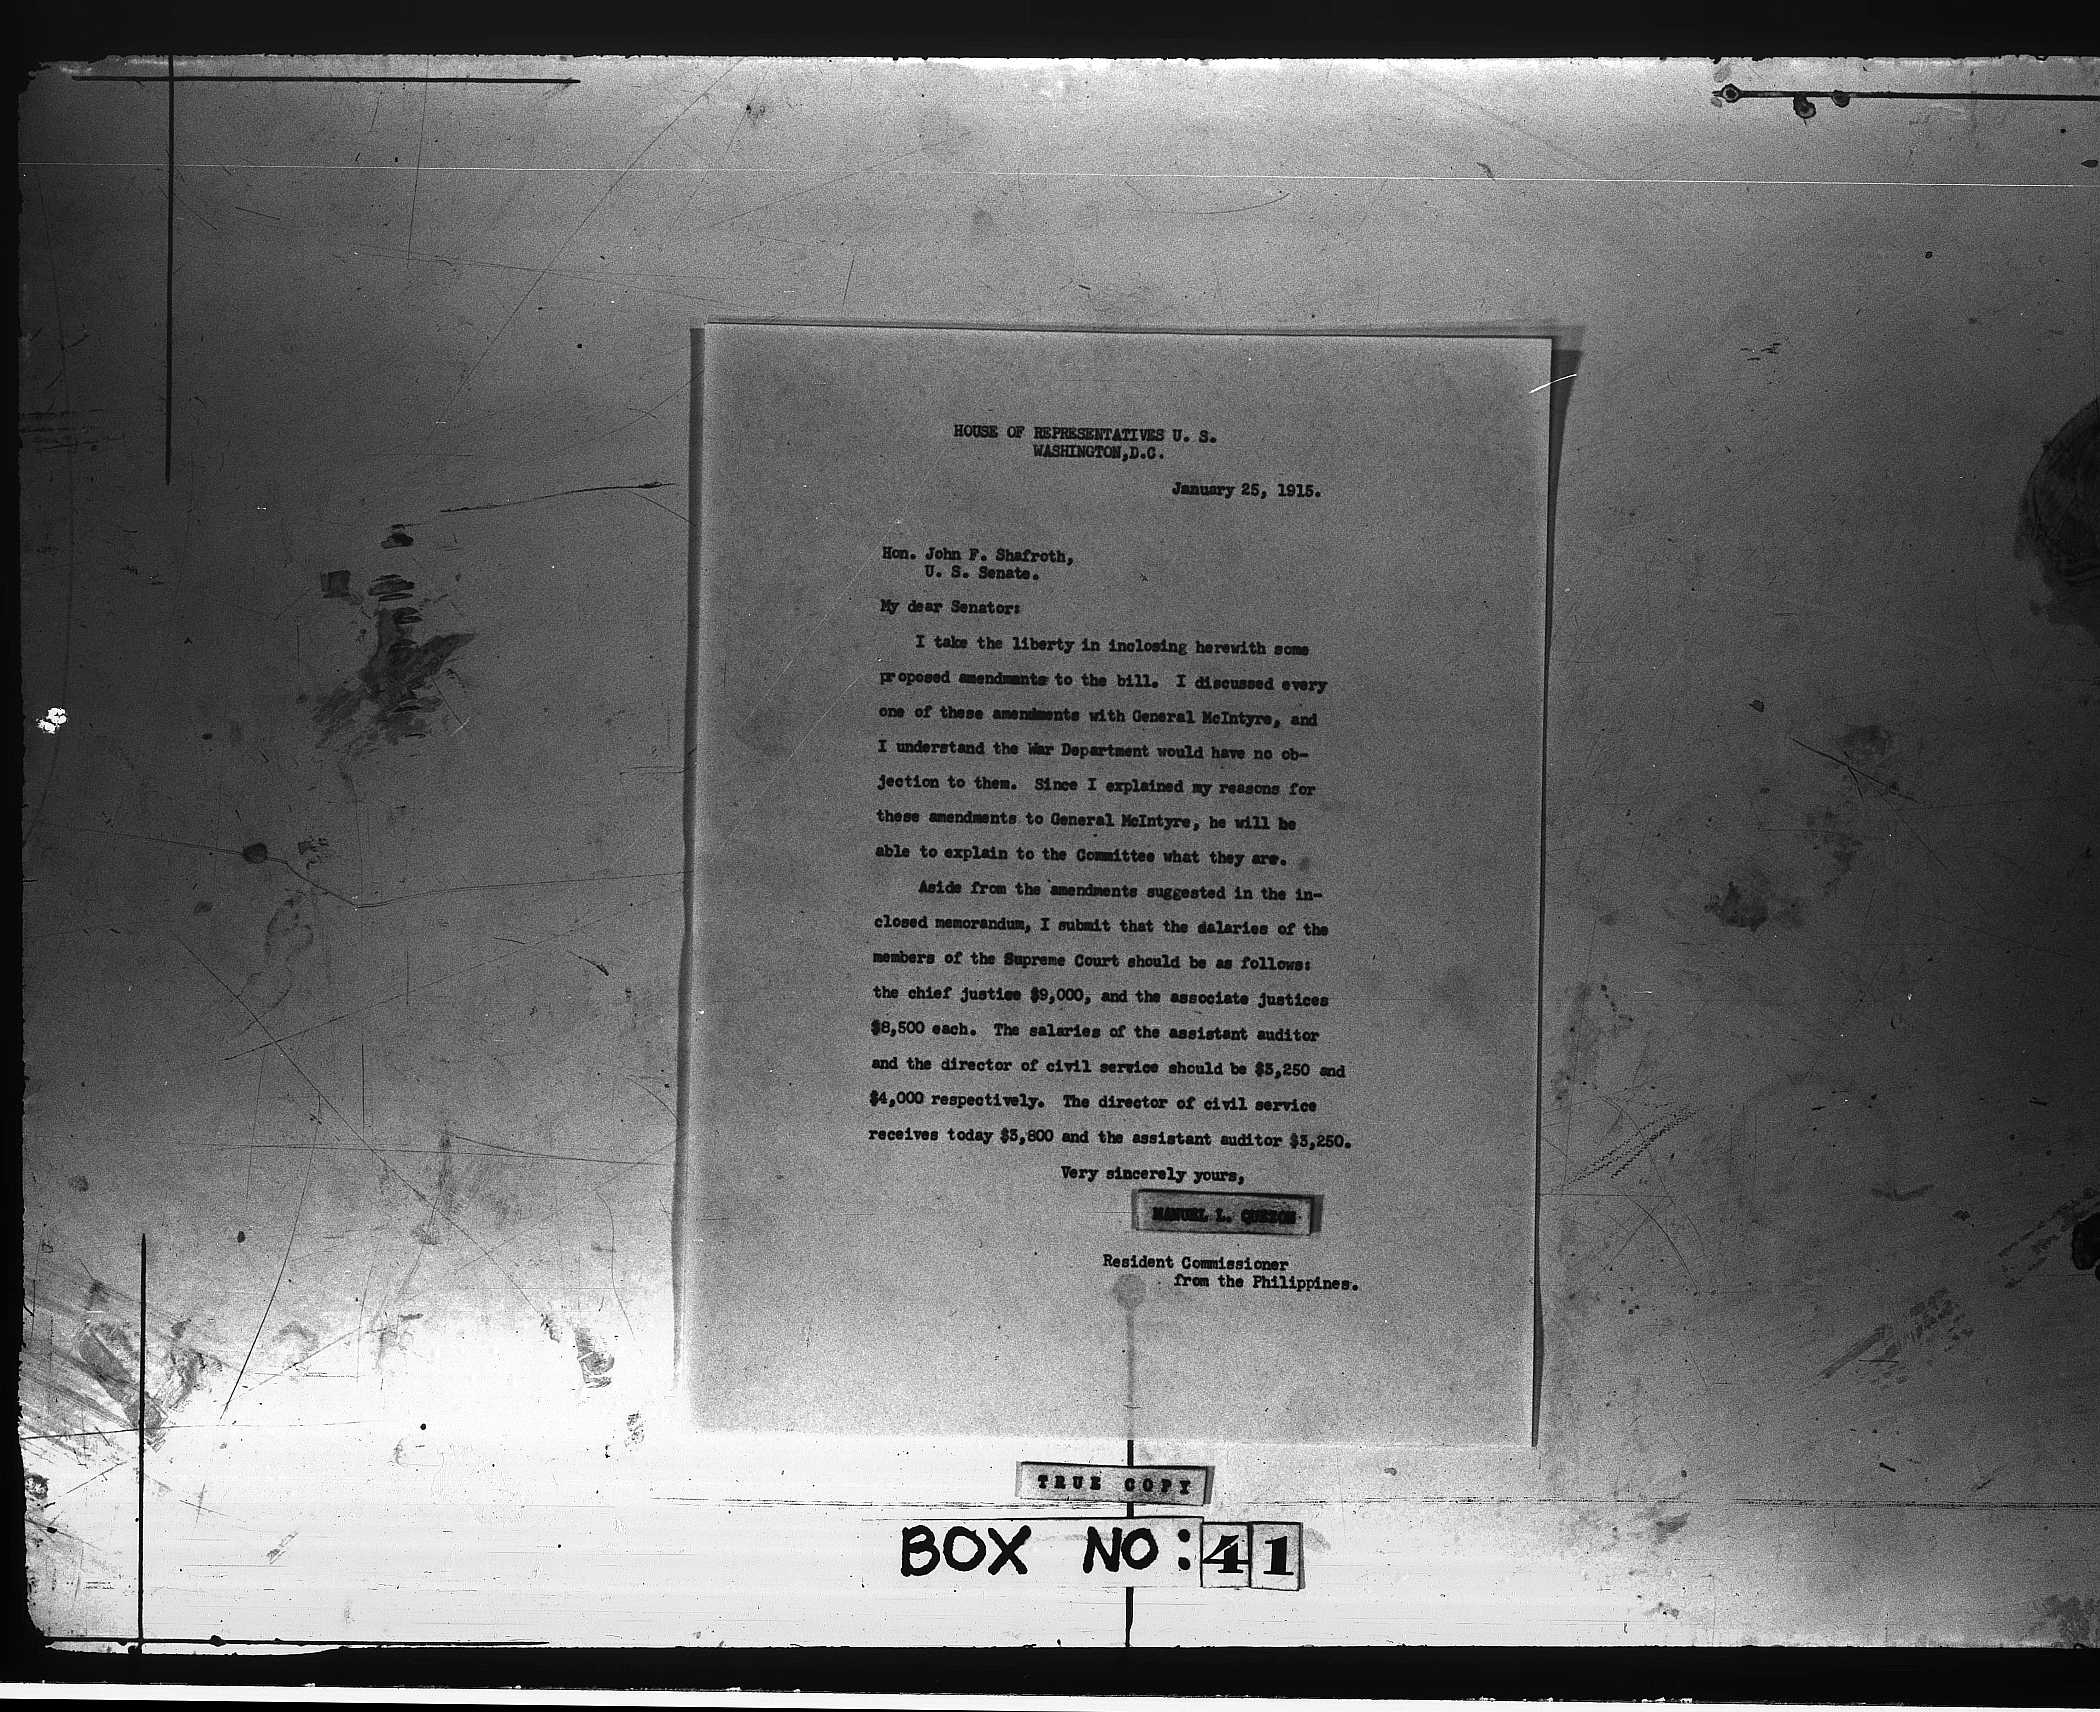 HOUSE OF REPRESENTATIVES U. S.
WASHINGTON,D.C.
January 25, 1915.
Hon. John F. Shafroth,
U. S. Senate.
My dear Senator:
I take the liberty in inclosing herewith some
proposed amendments to the bill. I discussed every
one of these amendments with General McIntyre, and
I understand the War Department would have no ob-
jection to them. Since I explained my reasons for
these amendments to General McIntyre, he will be
able to explain to the Committee what they are.
Aside from the amendments suggested in the in-
closed memorandum, I submit that the salaries of the
members of the Supreme Court should be as follows:
the chief justice $9,000, and the associate justices
$8,500 each. The salaries of the assistant auditor
and the director of civil service should be $3,250 and
$4,000 respectively. The director of civil service
receives today $3,800 and the assistant auditor $3,250.
Very sincerely yours,
MANUEL L. QUEZON
Resident Commissioner
from the Philippines.
TRUE COPY
BOX NO: 41